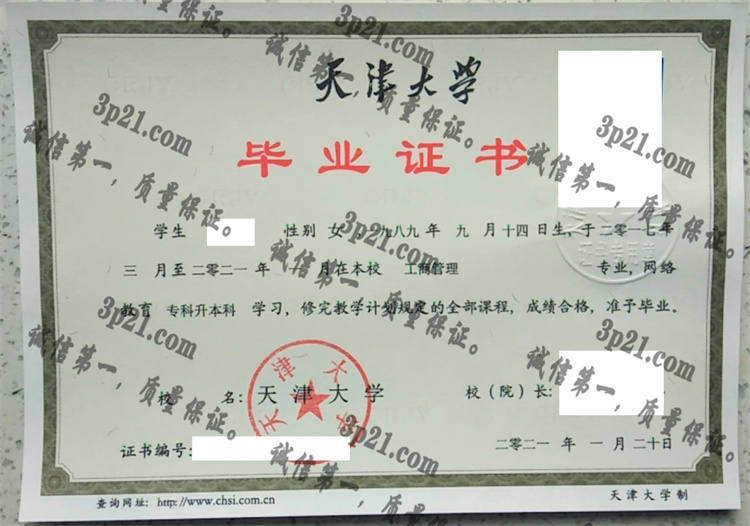 天津大学
毕业证书
学生 性别 女，一九八九年 九 月十四日生，于二〇一七年
三 月至二〇二一年 月在本校 工商管理 专业，网络
教育 专科升本科 学习，修完教学计划规定的全部课程，成绩合格，准予毕业。
校 名：天津大学 校（院）长：
天津大学
证书编号：
二〇二一 年 一 月 二十日
查询网址：http://www.chsi.com.cn
天津大学制
3p21.com
诚信第一，质量保证。
3p21.com
诚信第一，质量保证。
3p21.com
诚信第一，质量保证。
3p21.com
诚信第一，质量保证。
3p21.com
诚信第一，质量保证。
3p21.com
诚信第一，质量保证。
3p21.com
诚信第一，质量保证。
3p21.com
诚信第一，质量保证。